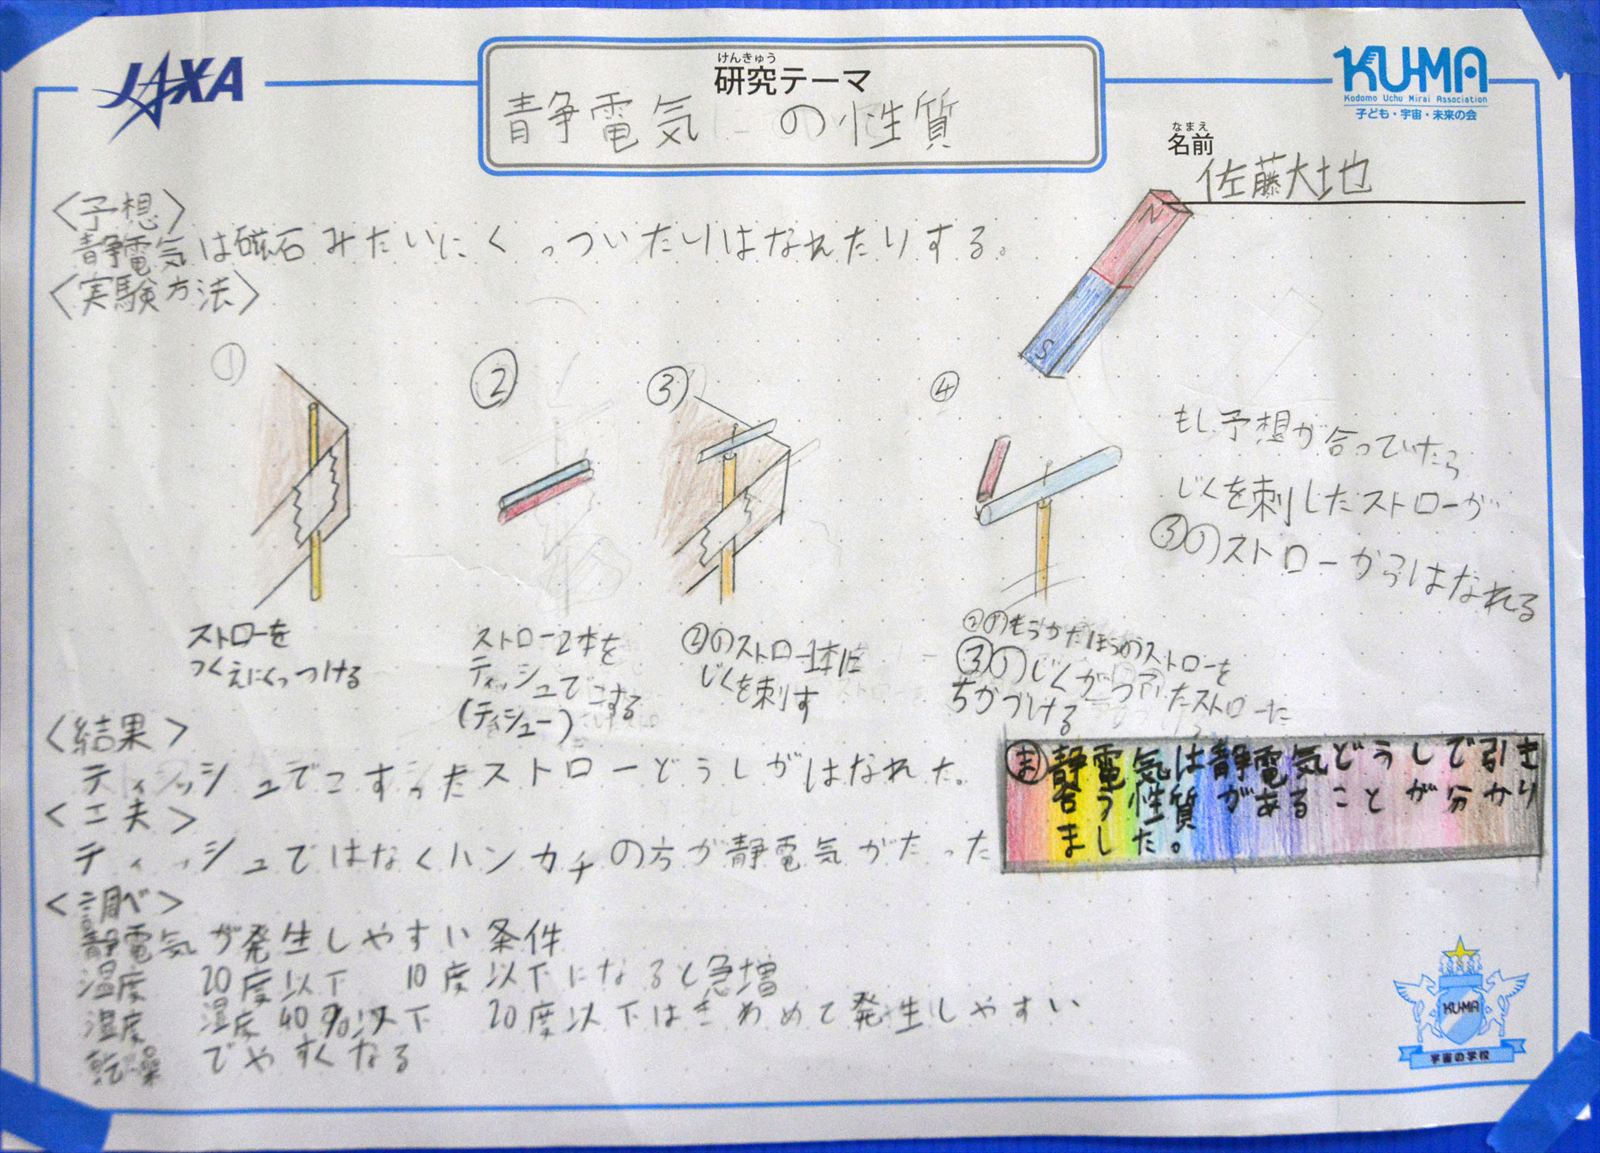 JAXA
けんきゅう
研究テーマ
静電気の性質
KU-MA
Kodomo Uchu Mirai Association
子ども・宇宙・未来の会
なまえ
名前
佐藤大地
<予想>
静電気は磁石みたいにくっついたりはなれたりする。
<実験方法>
N
S
①
ストローを
つくえにくっつける
②
ストロー2本を
ティッシュで
こする
(ティシュー)
③
②のストロー1本に
じくを刺す
④
②のもうかたほうのストローを
③のじくがつ
たストローに
ちかづける
もし予想が合っていたら
じくを刺したストローが
③のストローからはなれる
<結果>
ティッシュでこすったストローどうしがはなれた。
<工夫>
ティッシュではなくハンカチの方が静電気がたった
ま 静電気は静電気どうしで引き
合う性質があることが分かり
ました。
<調べ>
静電気が発生しやすい条件
温度 20度以下 10度以下になると急増
湿度 湿度40%以下 20度以下はきわめて発生しやすい
乾燥 でやすくなる
KU-MA
宇宙の学校